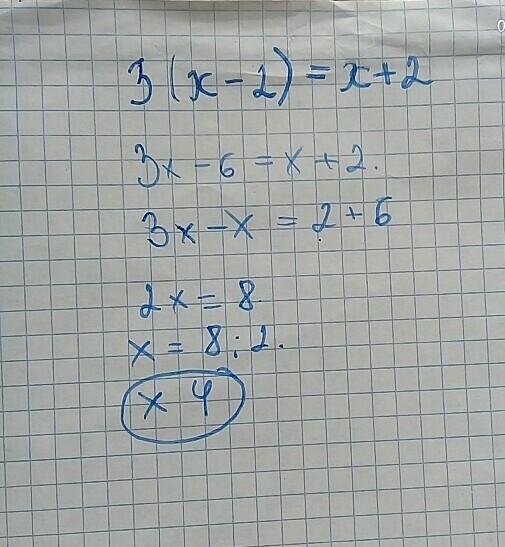 3(x-2)=x+2
3x-6=x+2.
3x-x=2+6
2x=8.
x=8:2.
x 4